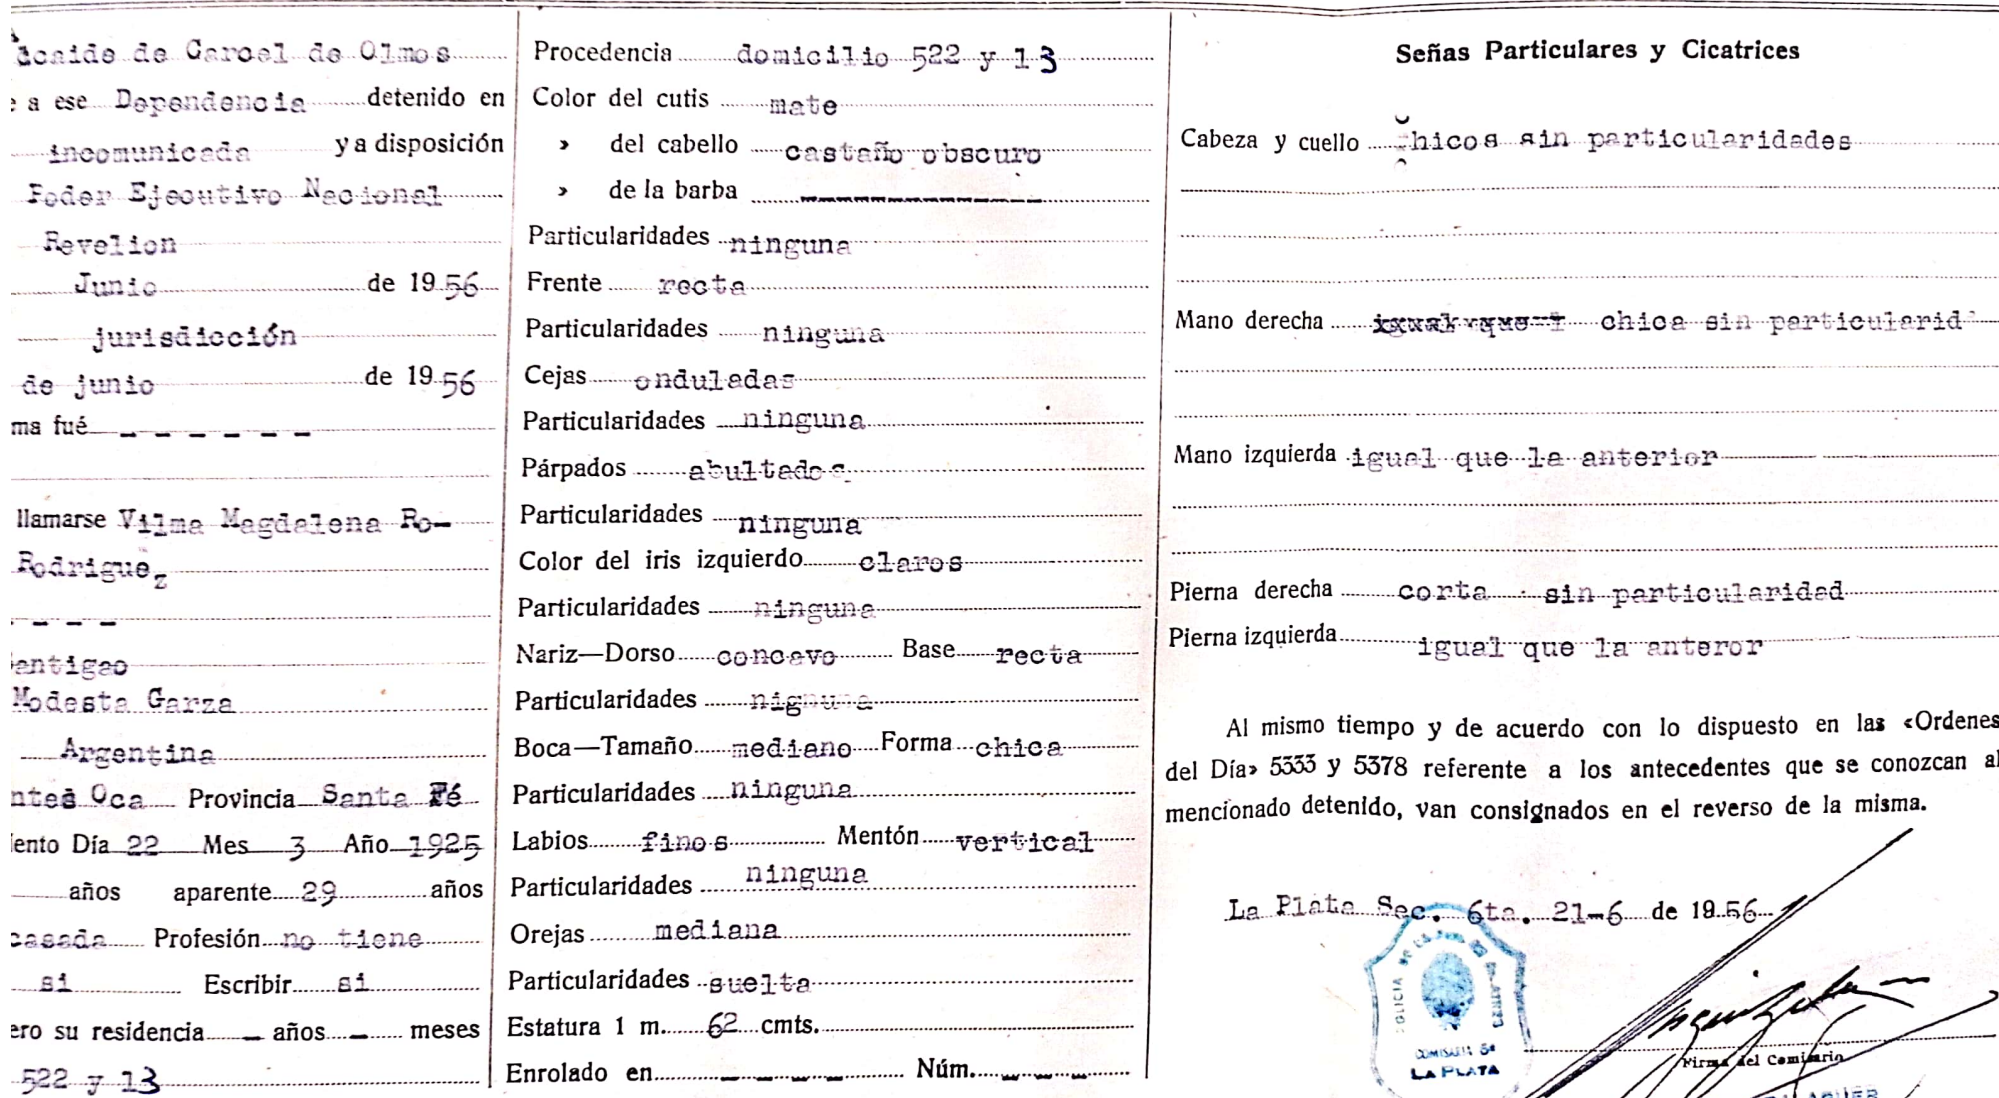 de Carcel de Olmos
a ese Dependencia detenido en
incomunicada y a disposición
Poder Ejecutivo Nacional
Revelion
Junio de 1956
jurisdicción
de junio de 1956
ma fué — — — — — —
llamarse Vilma Magdalena Ro-
Rodriguez
— — — —
entigao
Modesta Garza
Argentina
ntes Oca Provincia Santa Fé
iento Día 22 Mes 3 Año 1925
años aparente 29 años
casada Profesión no tiene
si Escribir si
ero su residencia — años — meses
522 y 13
Procedencia domicilio 522 y 13
Color del cutis mate
» del cabello castaño obscuro
» de la barba ----------------
Particularidades ninguna
Frente recta
Particularidades ninguna
Cejas onduladas
Particularidades ninguna
Párpados abultados
Particularidades ninguna
Color del iris izquierdo claros
Particularidades ninguna
Nariz—Dorso concavo Base recta
Particularidades nignuna
Boca—Tamaño mediano Forma chica
Particularidades ninguna
Labios finos Mentón vertical
Particularidades ninguna
Orejas mediana
Particularidades suelta
Estatura 1 m. 62 cmts.
Enrolado en — — — — Núm. — — —
Señas Particulares y Cicatrices
Cabeza y cuello chicos sin particularidades
Mano derecha chica sin particularid
Mano izquierda igual que la anterior
Pierna derecha corta sin particularidad
Pierna izquierda igual que la anteror
Al mismo tiempo y de acuerdo con lo dispuesto en las «Ordenes
del Día» 5333 y 5378 referente a los antecedentes que se conozcan al
mencionado detenido, van consignados en el reverso de la misma.
La Plata Sec. 6ta. 21-6 de 1956
POLICIA
COMISARIA
LA PLATA
Firma del Comisario